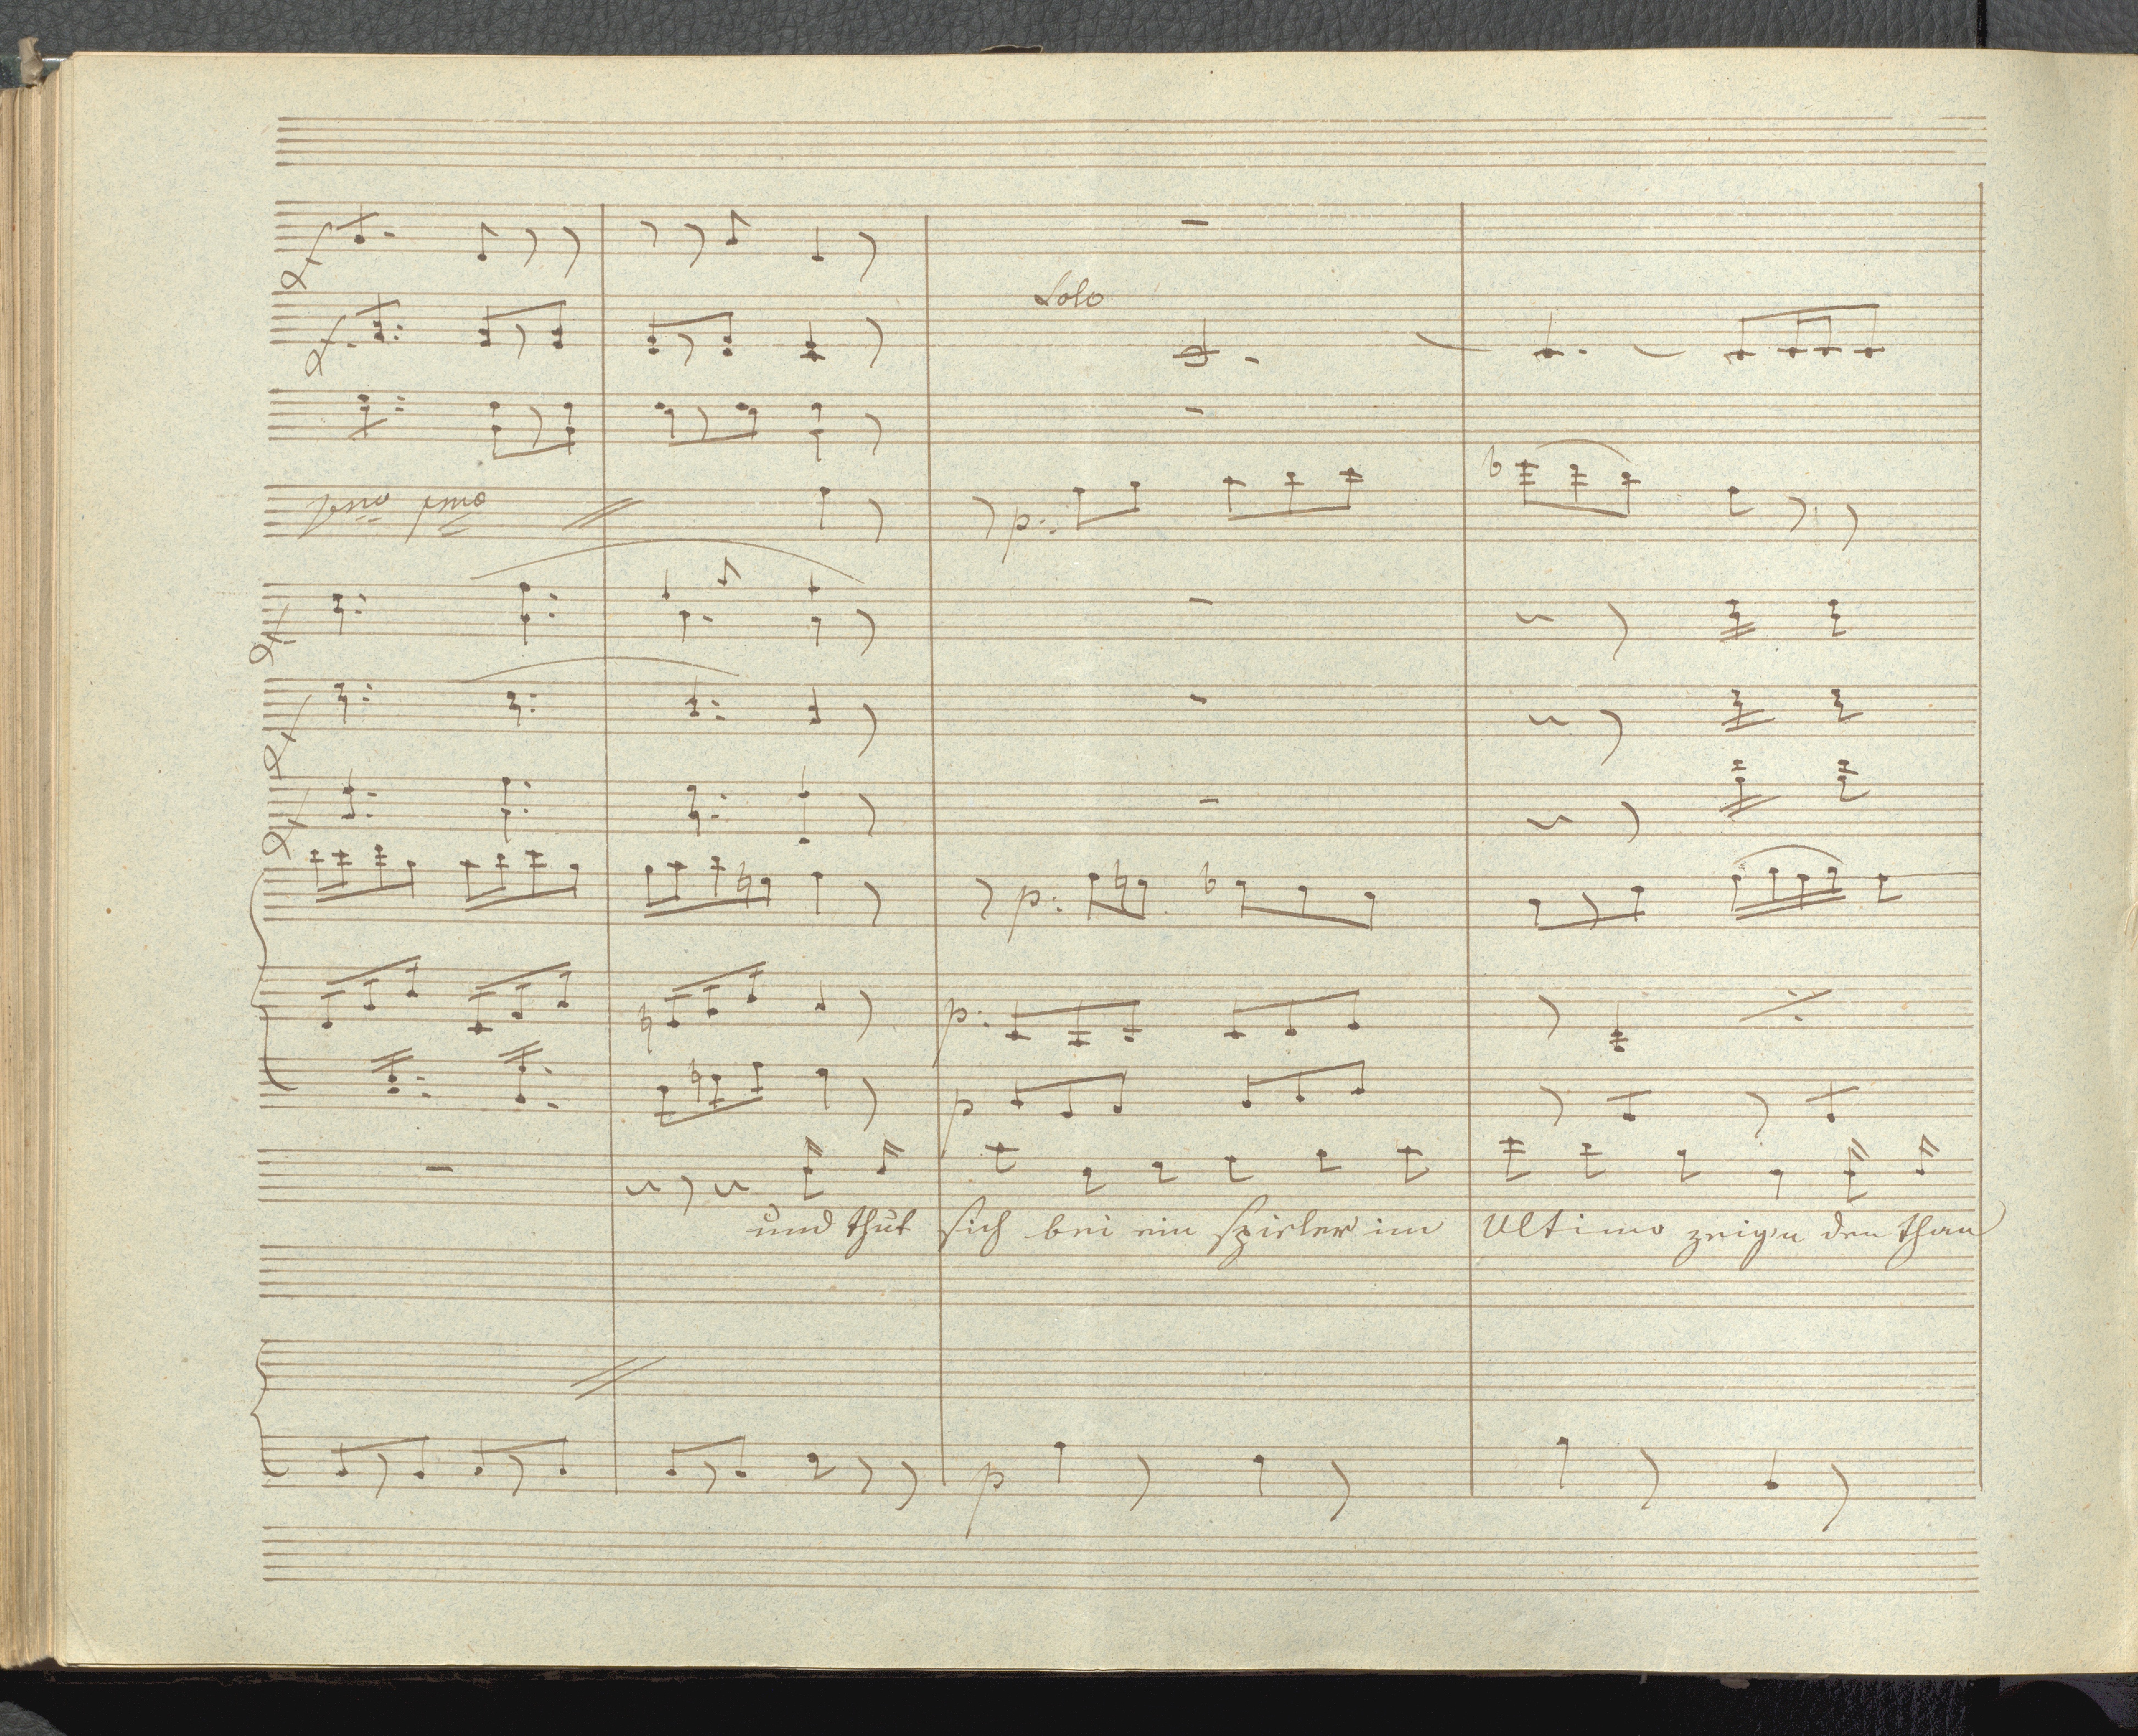 Solo
pmo pmo
p:
p:
p:
p
und thut sich bei ein spieler im Ultimo zeig'n den than
p